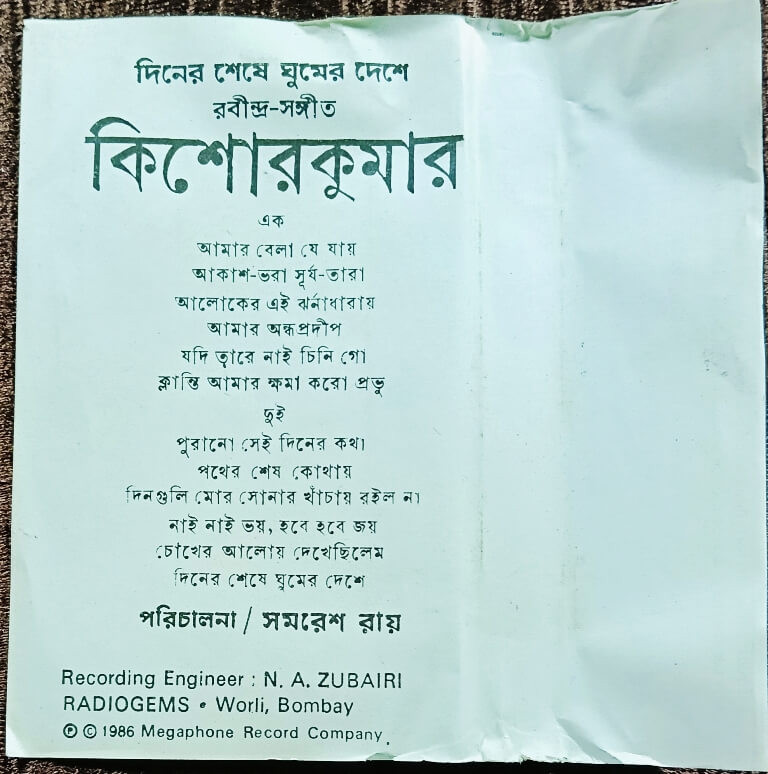 দিনের শেষে ঘুমের দেশে
রবীন্দ্র-সঙ্গীত
কিশোরকুমার
এক
আমার বেলা যে যায়
আকাশ-ভরা সূর্য-তারা
আলোকের এই ঝর্নাধারায়
আমার অন্ধপ্রদীপ
যদি ত্বারে নাই চিনি গো
ক্লান্তি আমার ক্ষমা করো প্রভু
দুই
পুরানো সেই দিনের কথা
পথের শেষ কোথায়
দিনগুলি মোর সোনার খাঁচায় রইল না
নাই নাই ভয়, হবে হবে জয়
চোখের আলোয় দেখেছিলেম
দিনের শেষে ঘুমের দেশে
পরিচালনা / সমরেশ রায়
Recording Engineer : N. A. ZUBAIRI
RADIOGEMS • Worli, Bombay
℗ © 1986 Megaphone Record Company.